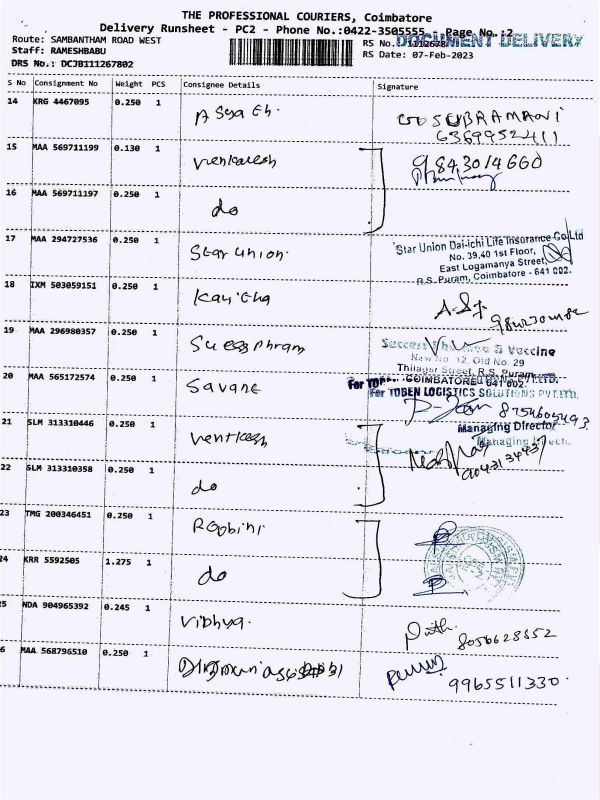 THE PROFESSIONAL COURIERS, Coimbatore
Delivery Runsheet - PC2 - Phone No.:0422-3505555 Page No.:2
Route: SAMBANTHAM ROAD WEST RS No. DOCUMENT DELIVERY
Staff: RAMESHBABU RS Date: 07-Feb-2023
DRS No.: DCJB111267802
S No Consignment No Weight PCS Consignee Details Signature
14 KRG 4467095 0.250 1
SUBRAMANI
6369952411
15 MAA 569711199 0.130 1 Venkatesh 9843014660
16 MAA 569711197 0.250 1 do
17 MAA 294727536 0.250 1 Star Union.
Star Union Dai-ichi Life Insurance Co Ltd
No. 39,40 1st Floor,
East Logamanya Street,
R.S. Puram, Coimbatore - 641 002.
18 IXM 503059151 0.250 1 Kavitha
19 MAA 296980357 0.250 1
Success Pharma & Vaccine
New No. 12, Old No. 29
Thilagar Street, R.S. Puram
COIMBATORE 641 002.
20 MAA 565172574 0.250 1 Savane
For TOBEN LOGISTICS SOLUTIONS PVT.LTD.
8754605493
Managing Director
21 SLM 313310446 0.250 1 Venkatesh
22 SLM 313310358 0.250 1 do
23 TMG 200346451 0.250 1 Roobini
24 KRR 5592505 1.275 1 do
25 NDA 904965392 0.245 1 Vibhya. 8056628652
6 MAA 568796510 0.250 1
9965511330.